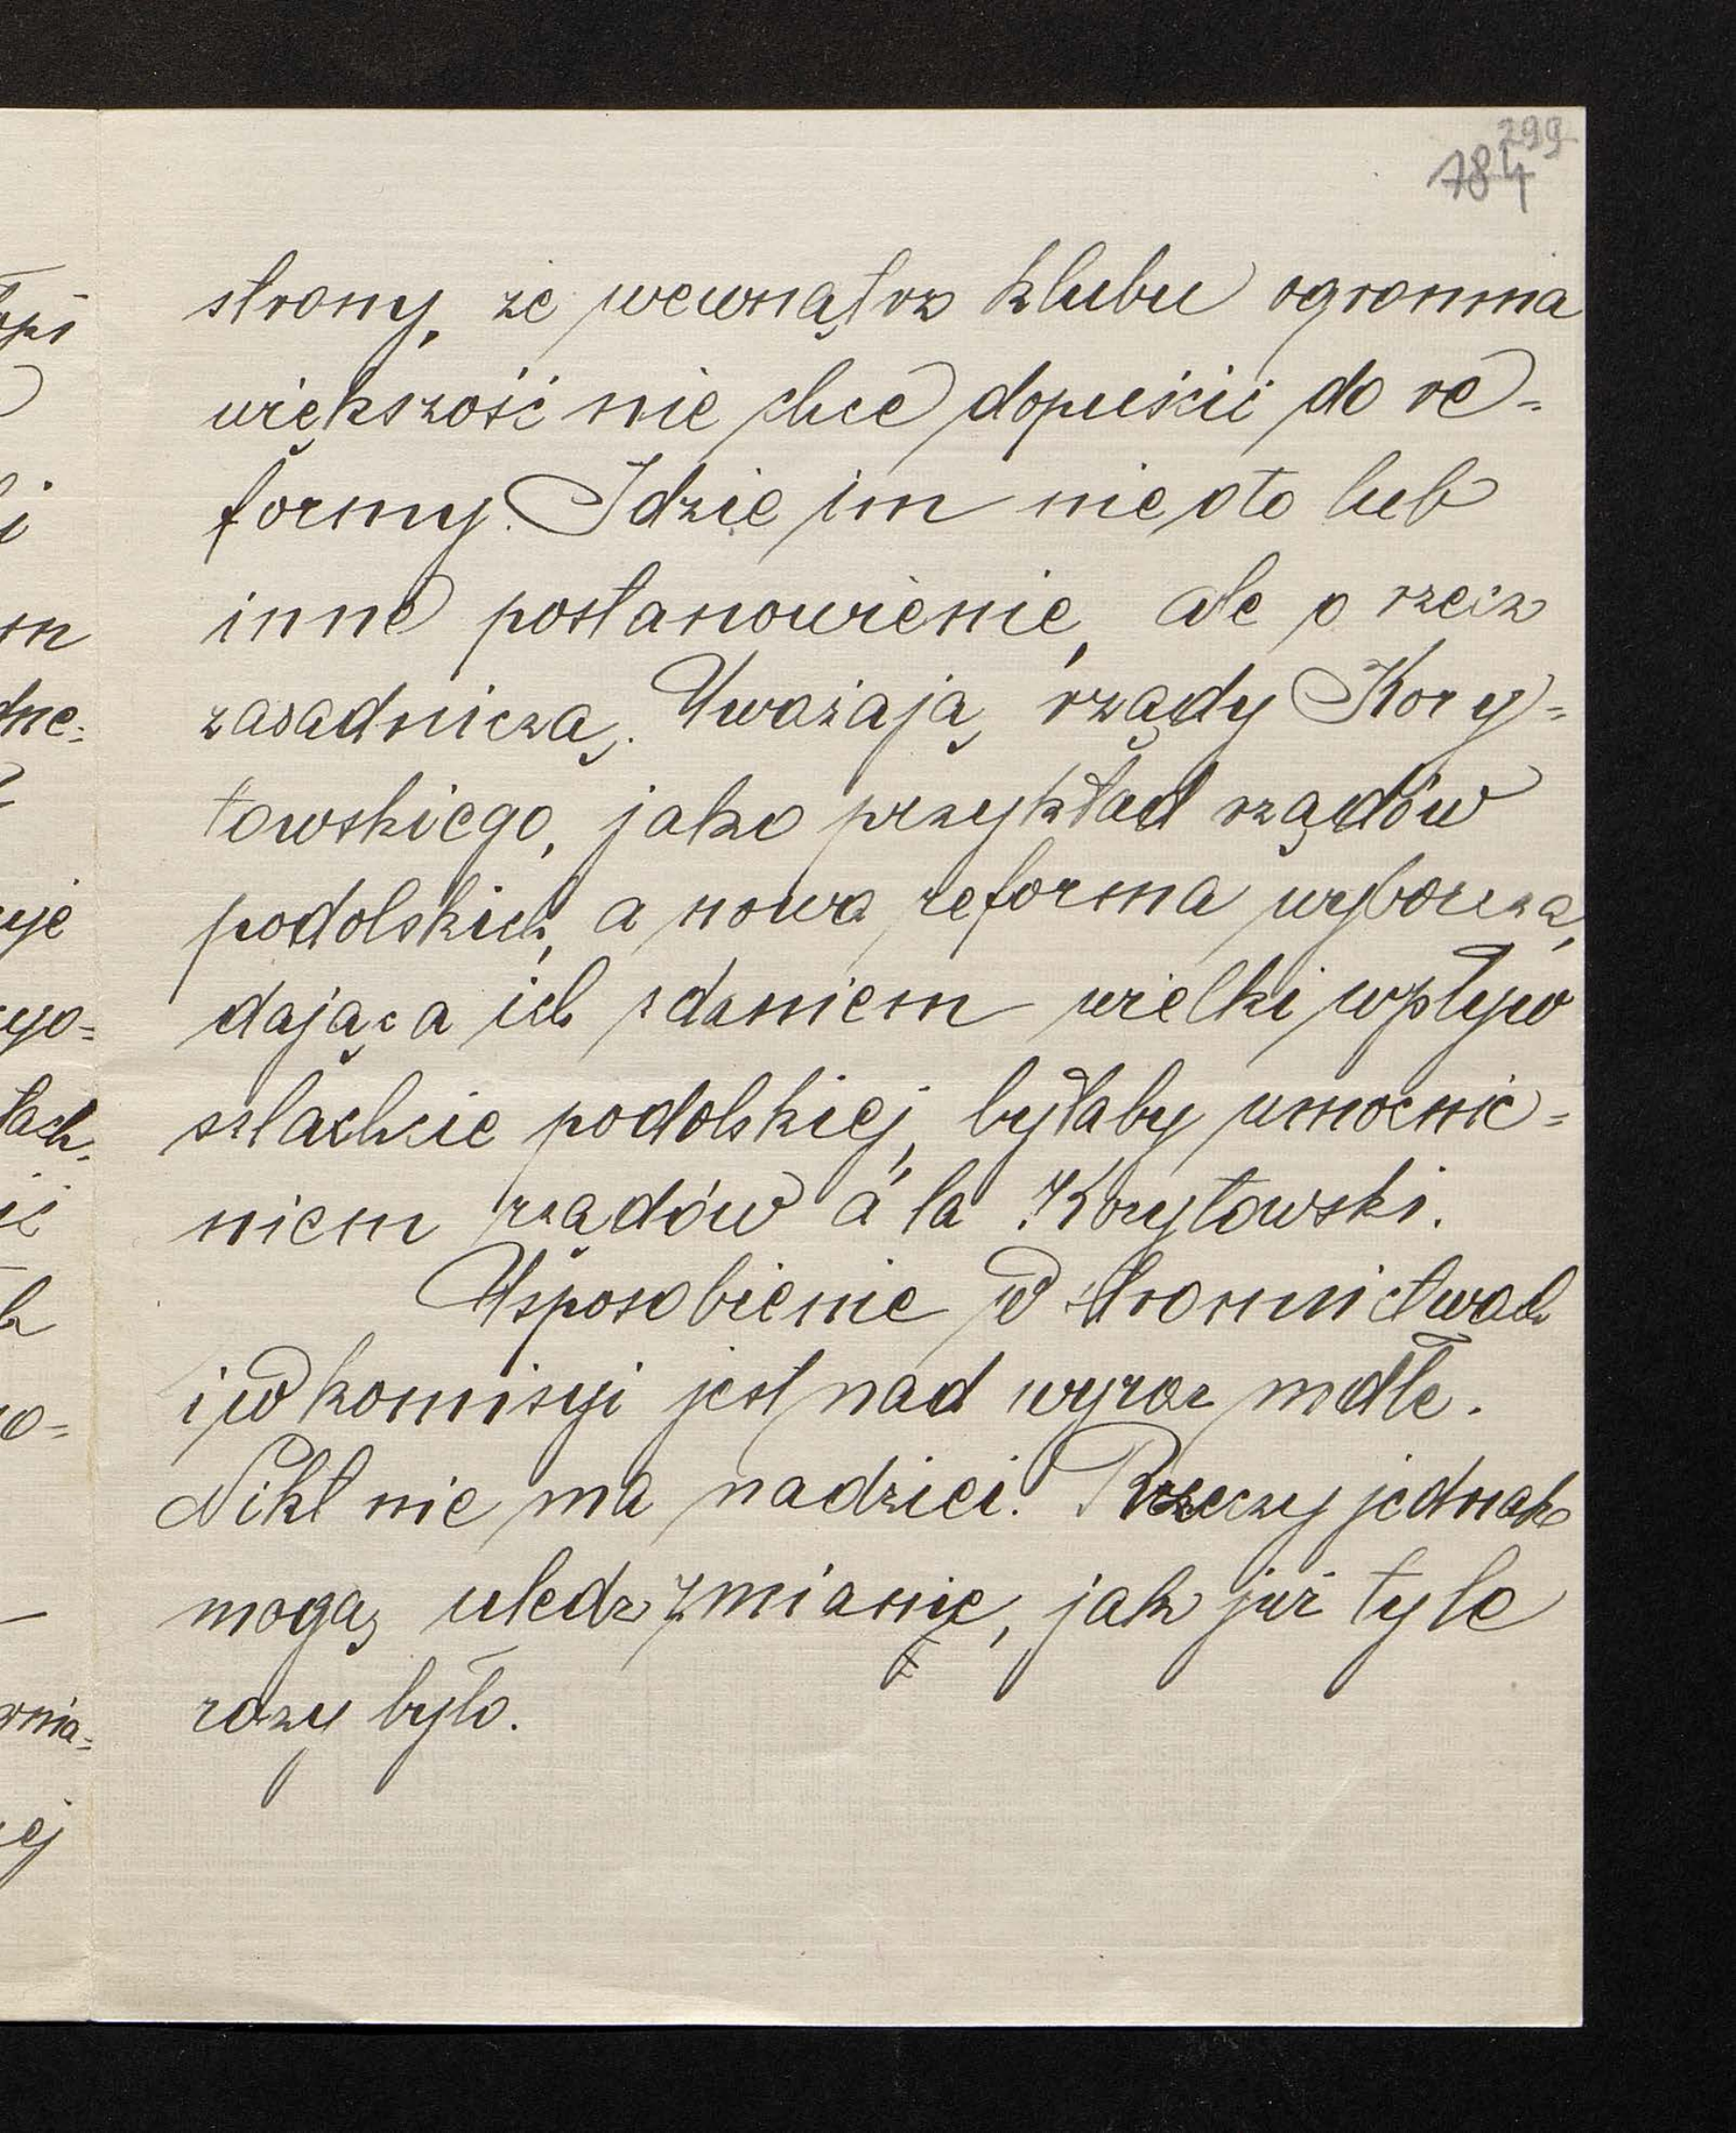 299
184
strony, że wewnątrz klubu ogromna
większość nie chce dopuścić do re=
formy. Idzie im nie oto lub
inne postanowienie, ale o rzecz
zasadniczą. Uważają rządy Kory=
towskiego, jako przykład rządów
podolskich, a nowa reforma wyborcza,
dająca ich zdaniem wielki wpływ
szlachcie podolskiej, byłaby umocnie=
niem rządów á la Korytowski.
Usposobienie w stronnictwach
i w komisyi jest nad wyraz mdłe.
Nikt nie ma nadziei. Rzeczy jednak
mogą uledz zmianie, jak już tyle
razy było.